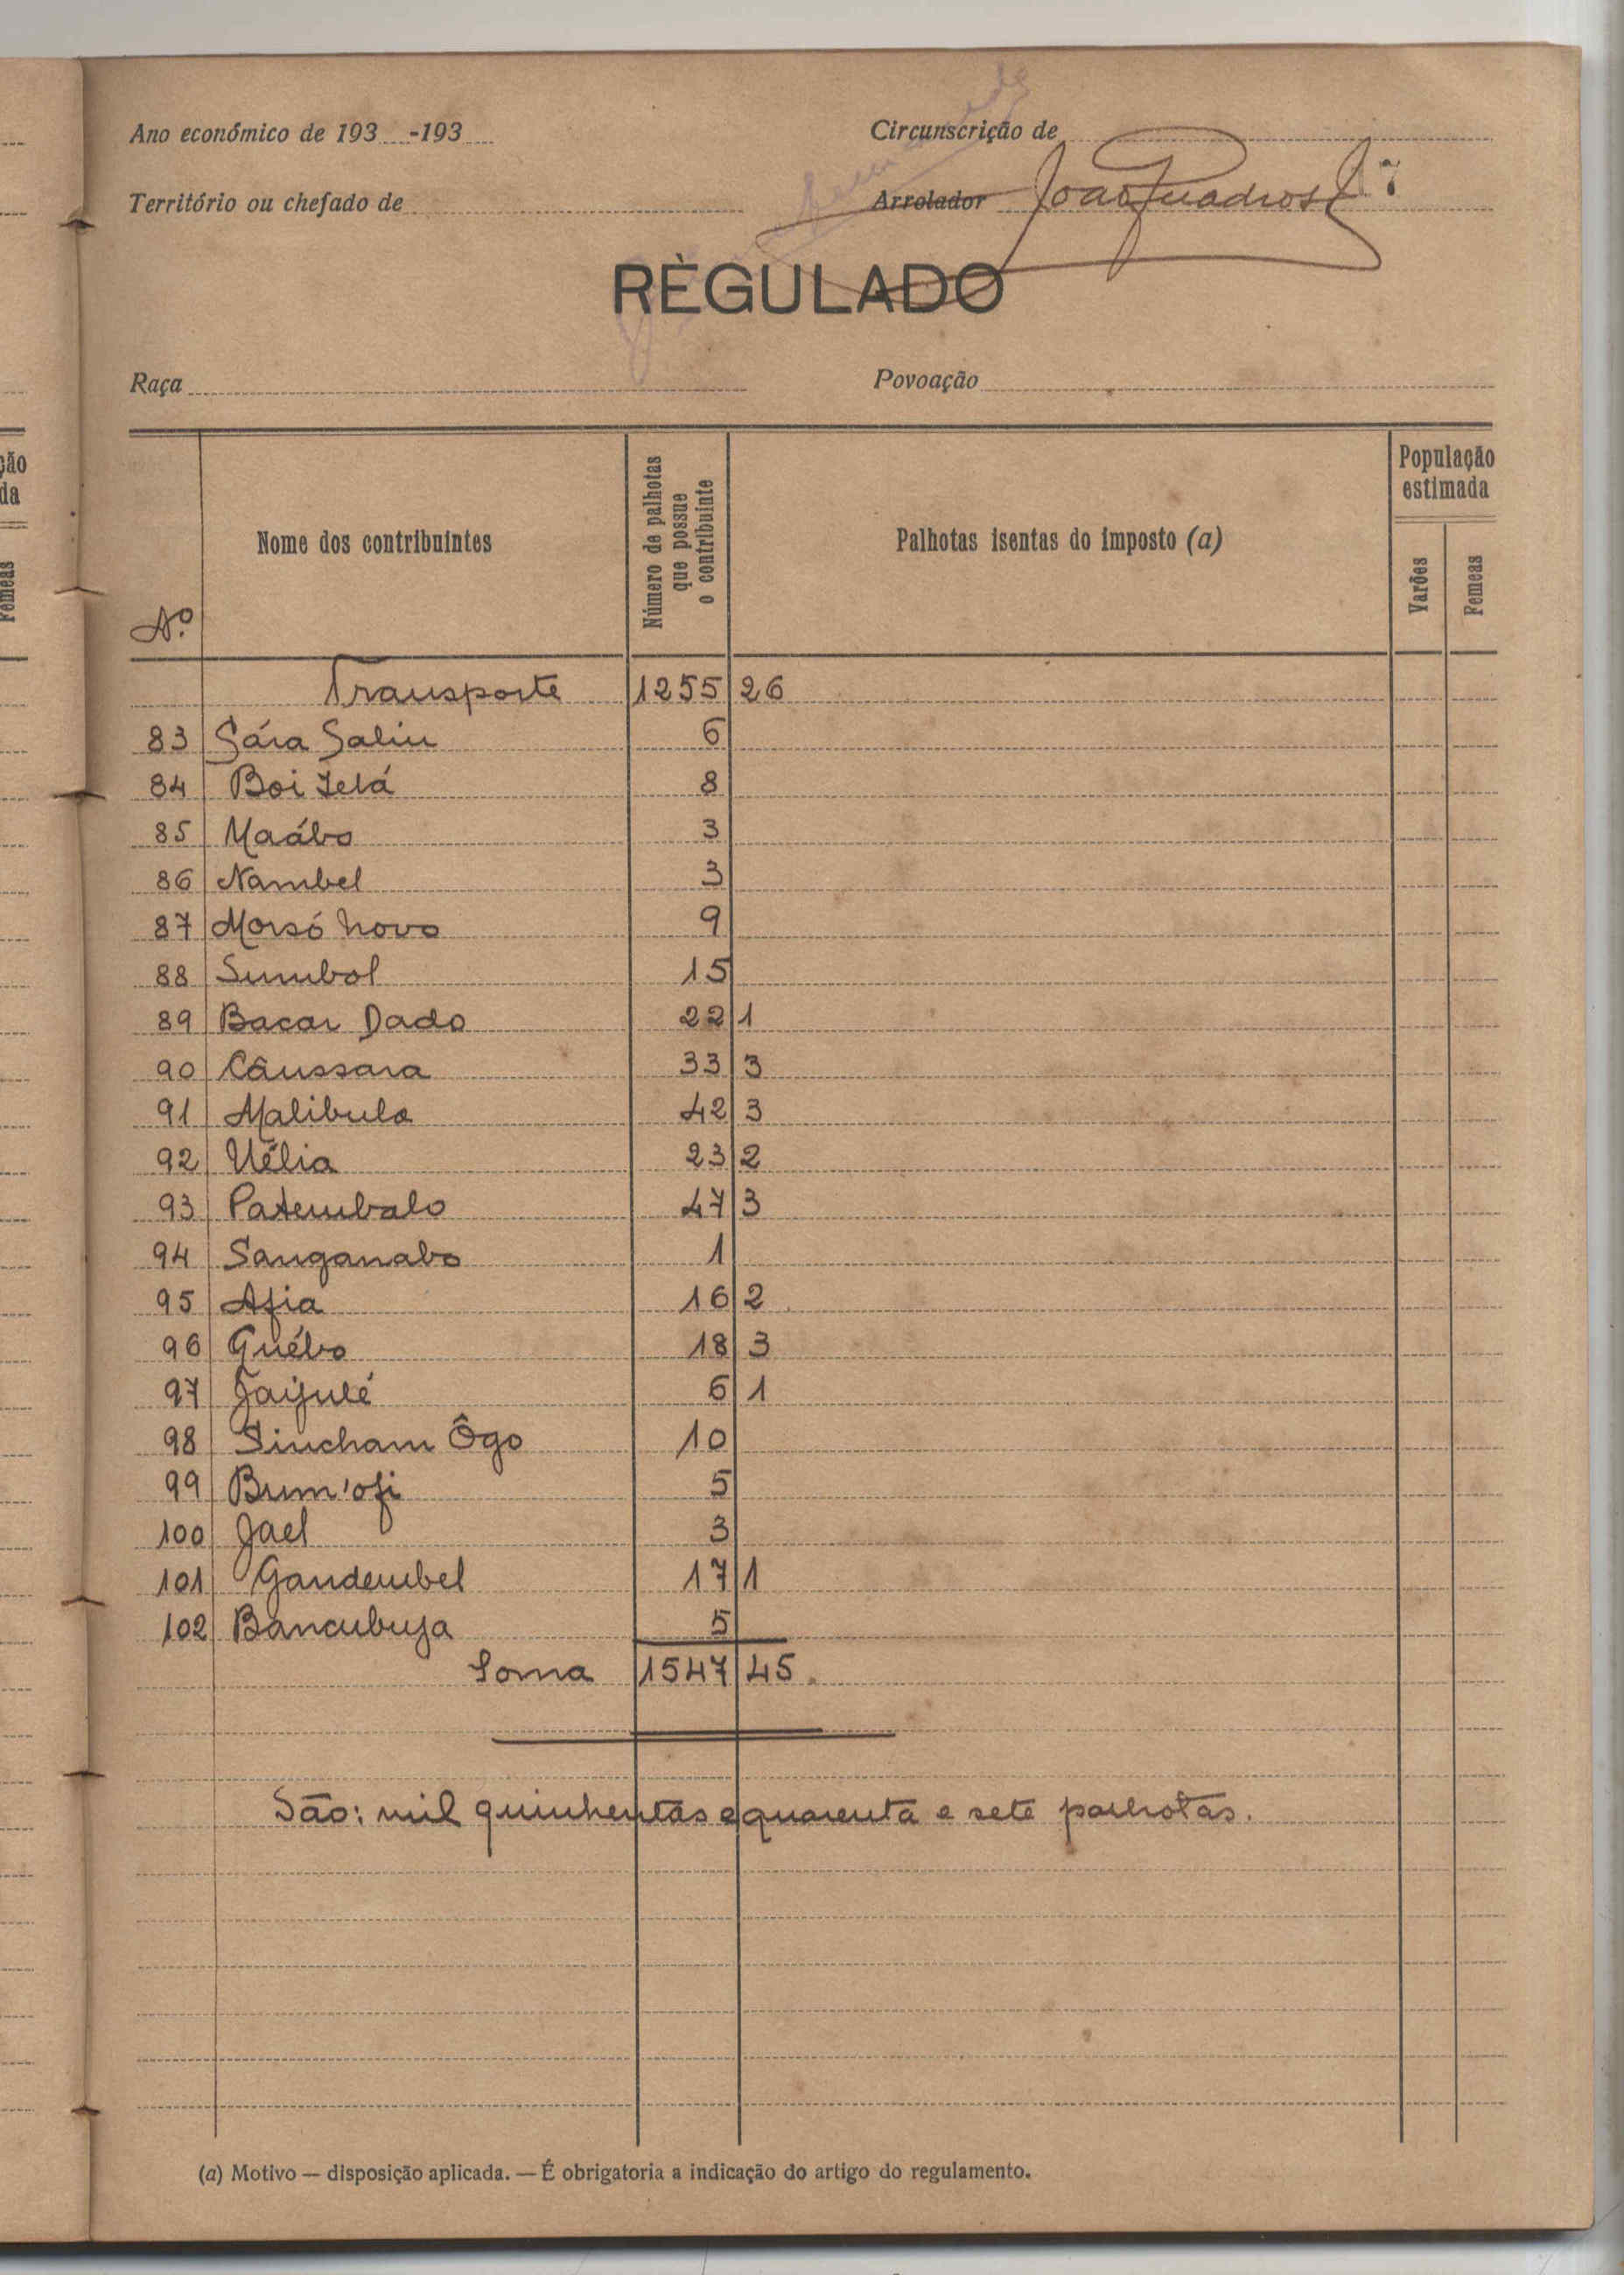 Ano económico de 193 -193
Circunscrição de
Território ou chefado de
Arrolador João Quadros 17
RÈGULADO
Raça
Povoação
Nº
Nome dos contribuintes
Número de palhotas que possue o contribuinte
Palhotas isentas do imposto (a)
População estimada
Varões
Femeas
Transporte 1255 26
83 Sára Saliu 6
84 Boi Jelá 8
85 Maábo 3
86 Nambel 3
87 Morsó Novo 9
88 Sumbol 15
89 Bacar Dado 22 1
90 Câussara 33 3
91 Malibula 42 3
92 Uélia 23 2
93 Patembalo 47 3
94 Sanganabo 1
95 Afia 16 2
96 Guébo 18 3
97 Jaijulé 6 1
98 Sincham Ôgo 10
99 Brum'ofi 5
100 Jael 3
101 Gandembel 17 1
102 Bancubuja 5
Soma 1547 45.
São: mil quinhentas e quarenta e sete palhotas.
(a) Motivo — disposição aplicada. — É obrigatoria a indicação do artigo do regulamento.
ção
da
Femeas